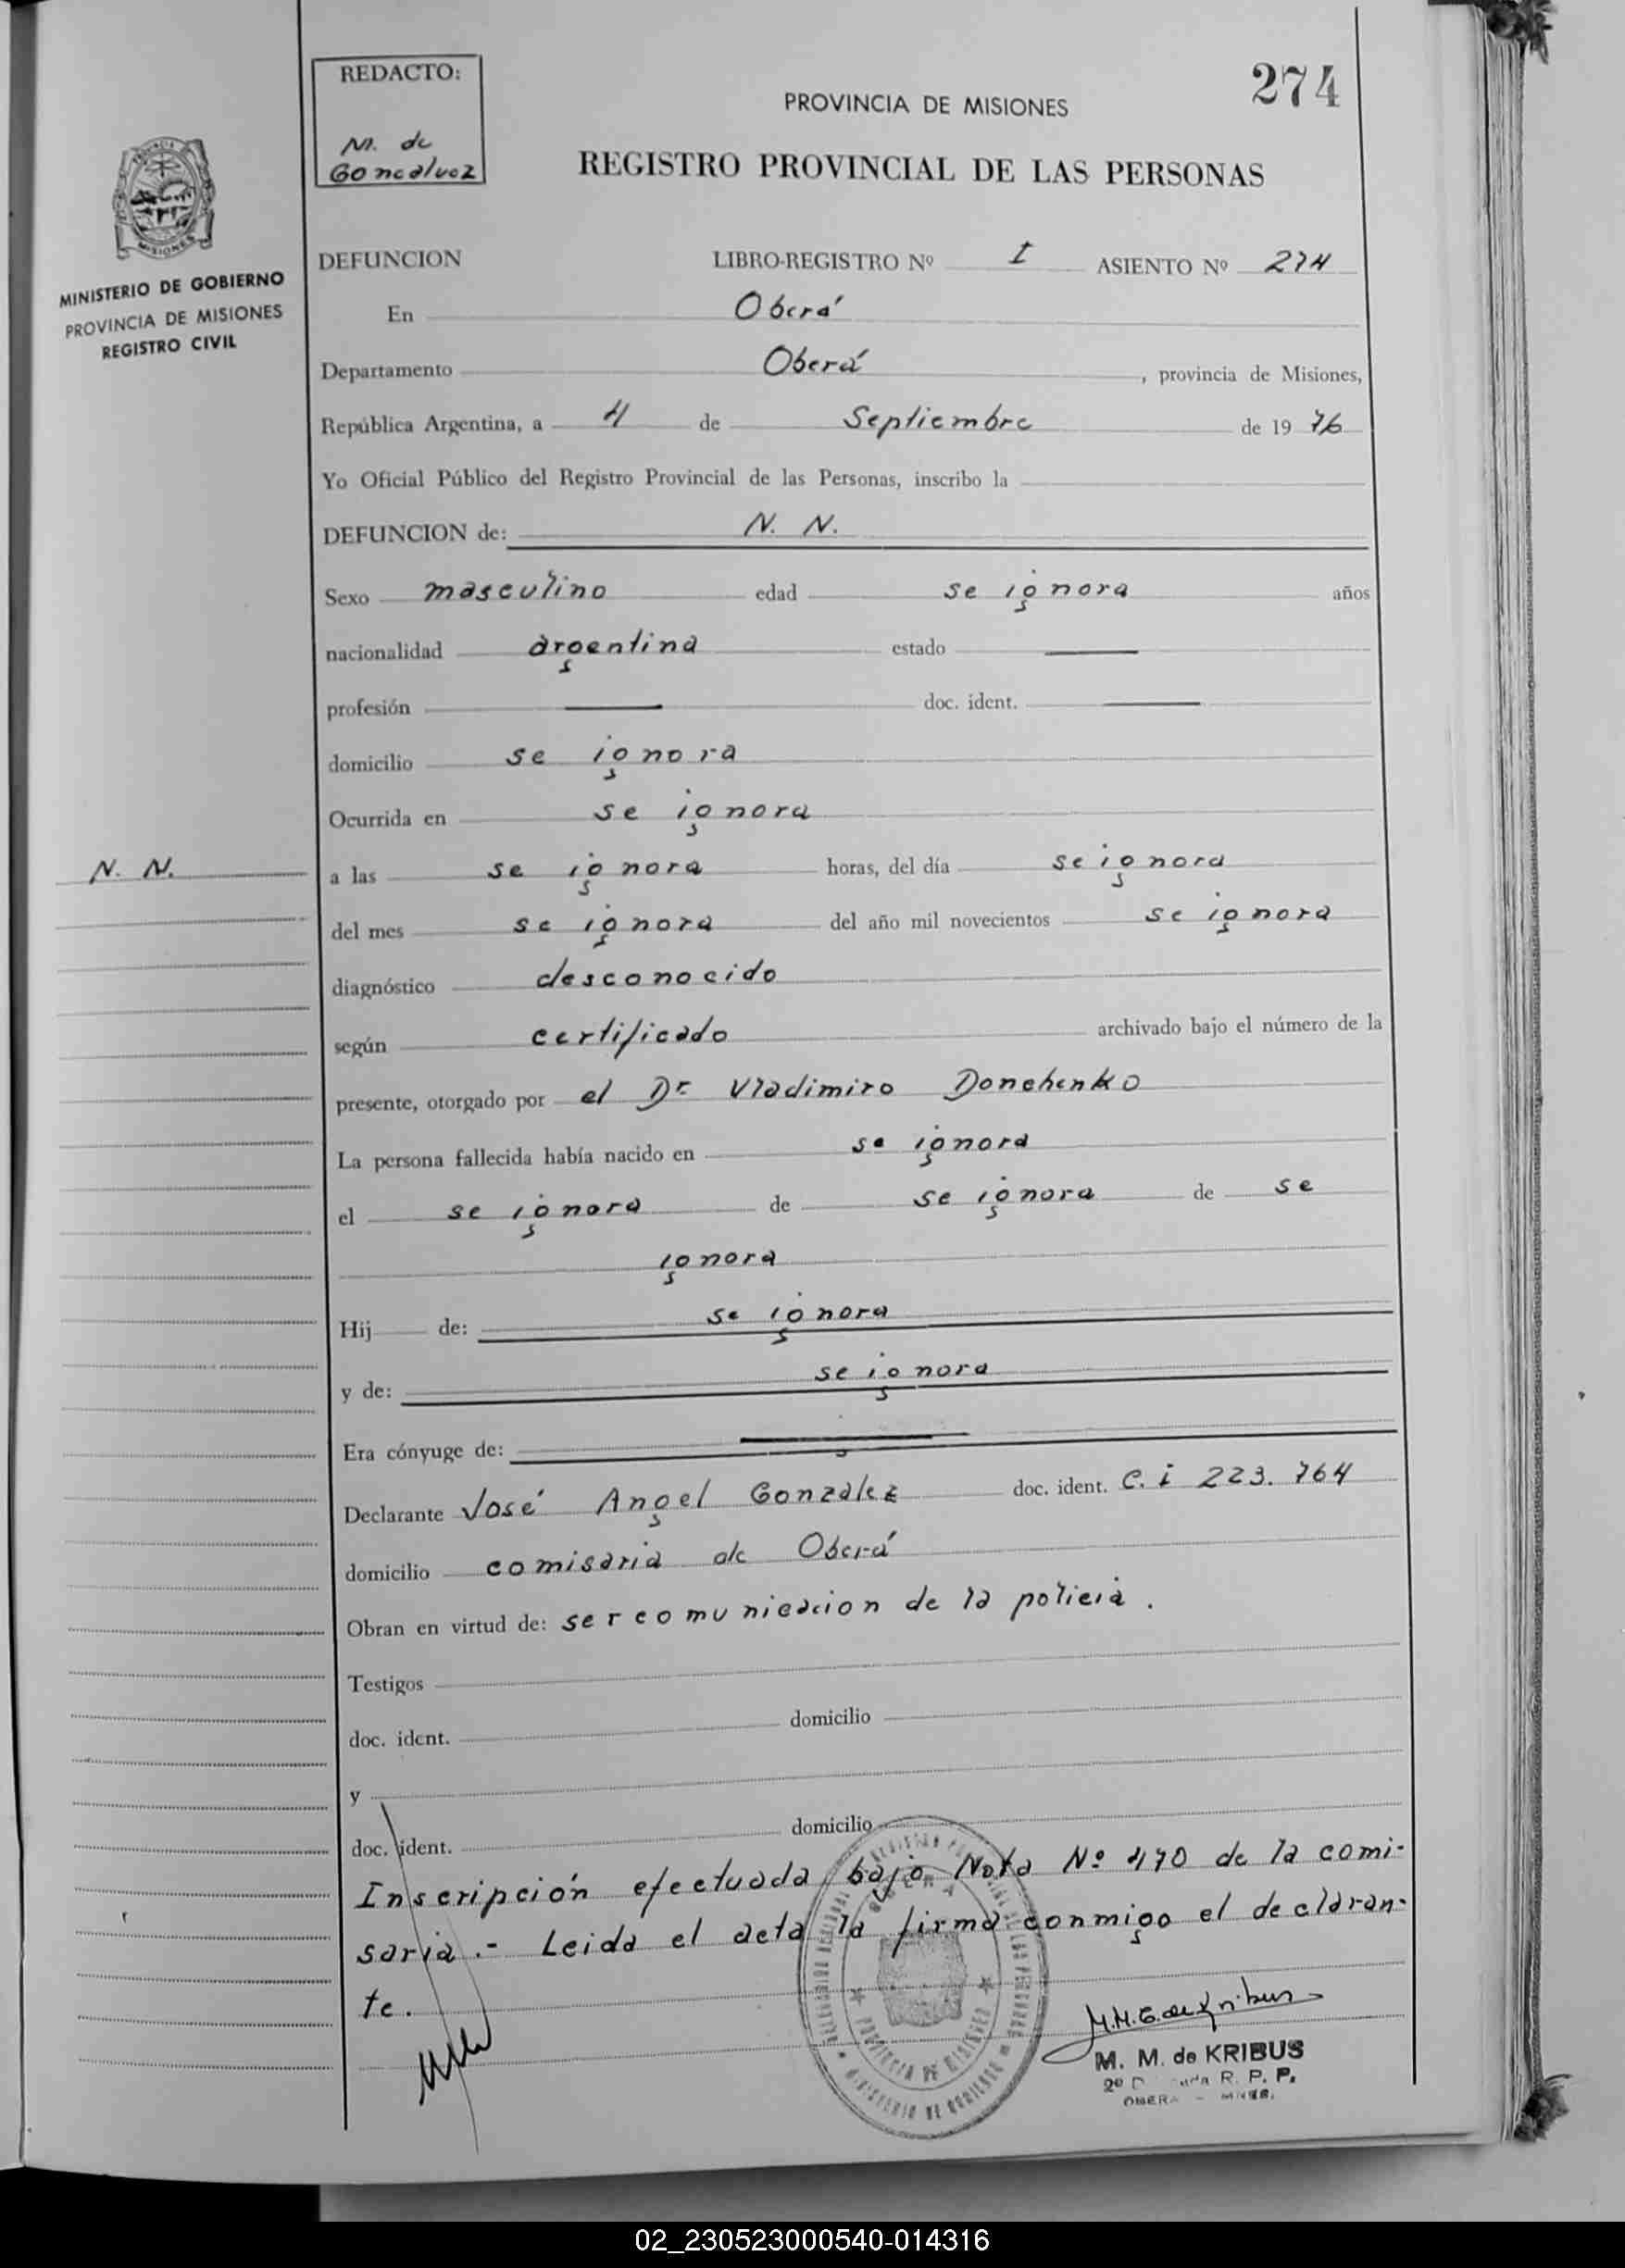 REDACTO:
M. de
Goncalvez
274
PROVINCIA DE MISIONES
REGISTRO PROVINCIAL DE LAS PERSONAS
MISIONES
MINISTERIO DE GOBIERNO
PROVINCIA DE MISIONES
REGISTRO CIVIL
DEFUNCION LIBRO-REGISTRO Nº I ASIENTO Nº 274
En Oberá
Departamento Oberá, provincia de Misiones,
República Argentina, a 4 de Septiembre de 19 76
Yo Oficial Público del Registro Provincial de las Personas, inscribo la
DEFUNCION de: N. N.
Sexo masculino edad se ignora años
nacionalidad argentina estado —
profesión — doc. ident. —
domicilio se ignora
Ocurrida en se ignora
N. N.
a las se ignora horas, del día se ignora
del mes se ignora del año mil novecientos se ignora
diagnóstico desconocido
según certificado archivado bajo el número de la
presente, otorgado por el Dr Vladimiro Donchenko
La persona fallecida había nacido en se ignora
el se ignora de se ignora de se
ignora
Hij de: se ignora
y de: se ignora
Era cónyuge de: —
Declarante José Angel Gonzalez doc. ident. C. i 223.764
domicilio comisaria de Oberá
Obran en virtud de: ser comunicacion de la policia.
Testigos
doc. ident. domicilio
y
doc. ident. domicilio
Inscripción efectuada bajo Nota Nº 470 de la comi-
saria.- Leida el acta la firma conmigo el declaran-
te.
OBERA
PROVINCIA DE MISIONES
MINISTERIO DE GOBIERNO
M. M. de KRIBUS
R. P. P.
OBERA -
02_230523000540-014316